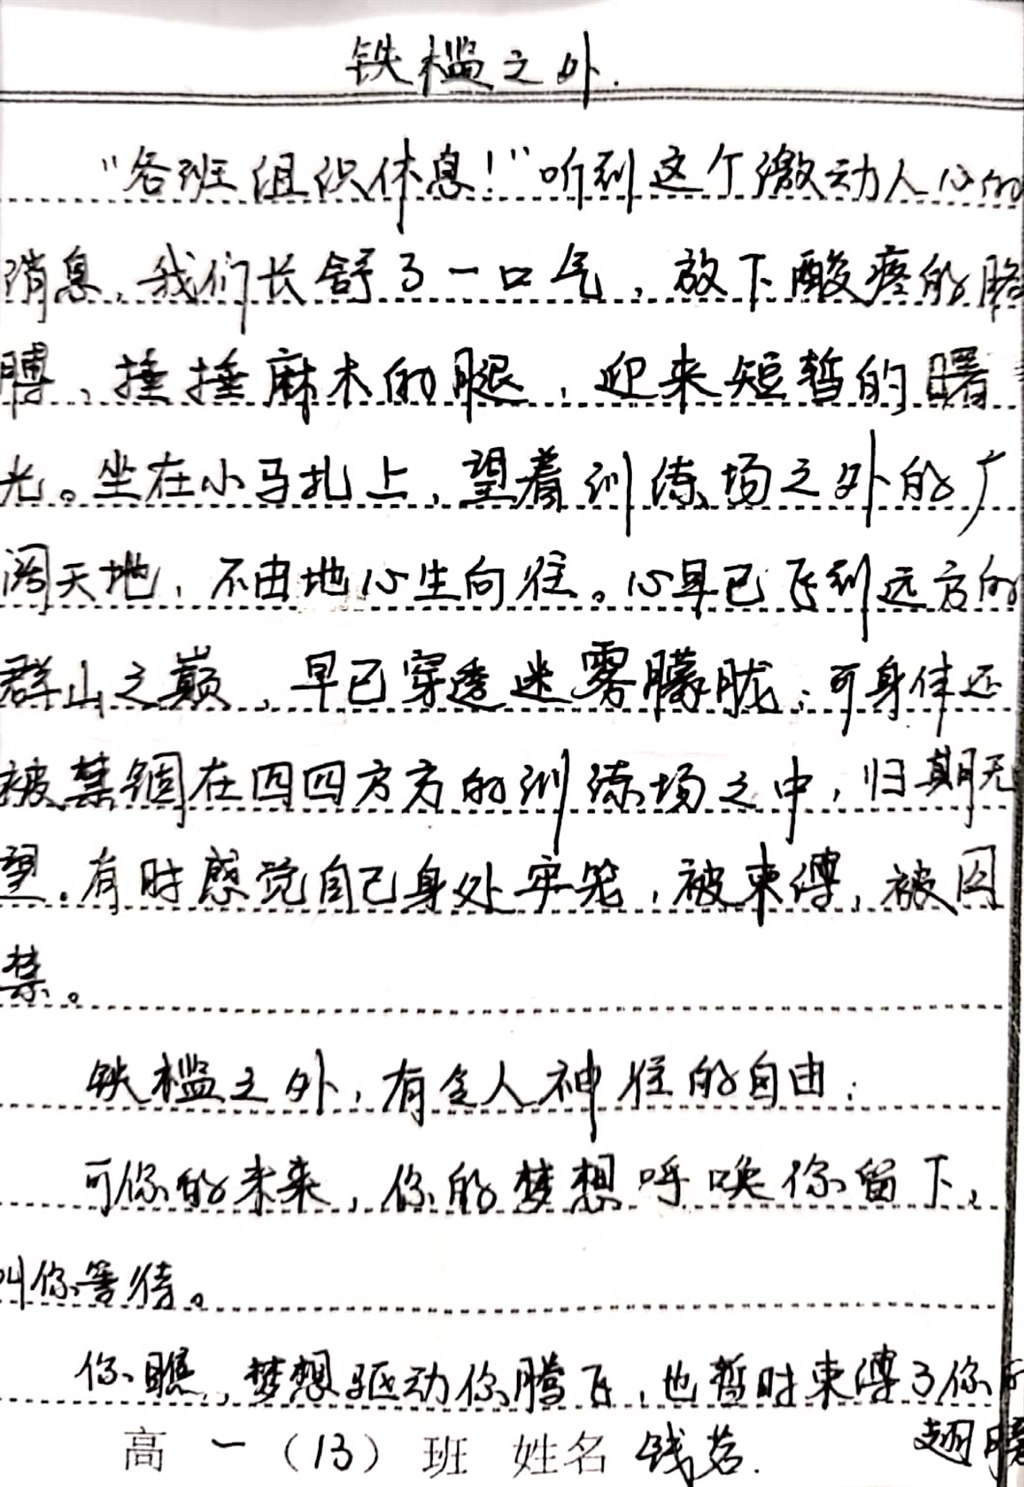 铁槛之外.
“各班组织休息！”听到这个激动人心的
消息，我们长舒了一口气，放下酸疼的胳
膊，捶捶麻木的腿，迎来短暂的曙
光。坐在小马扎上，望着训练场之外的广
阔天地，不由地心生向往。心早已飞到远方的
群山之巅，早已穿透迷雾朦胧；可身体还
被禁锢在四四方方的训练场之中，归期无
望。有时感觉自己身处牢笼，被束缚，被囚
禁。
铁槛之外，有令人神往的自由；
可你的未来，你的梦想呼唤你留下，
叫你等待。
你瞧，梦想驱动你腾飞，也暂时束缚了你
翅膀
高一（13）班 姓名 钱若.